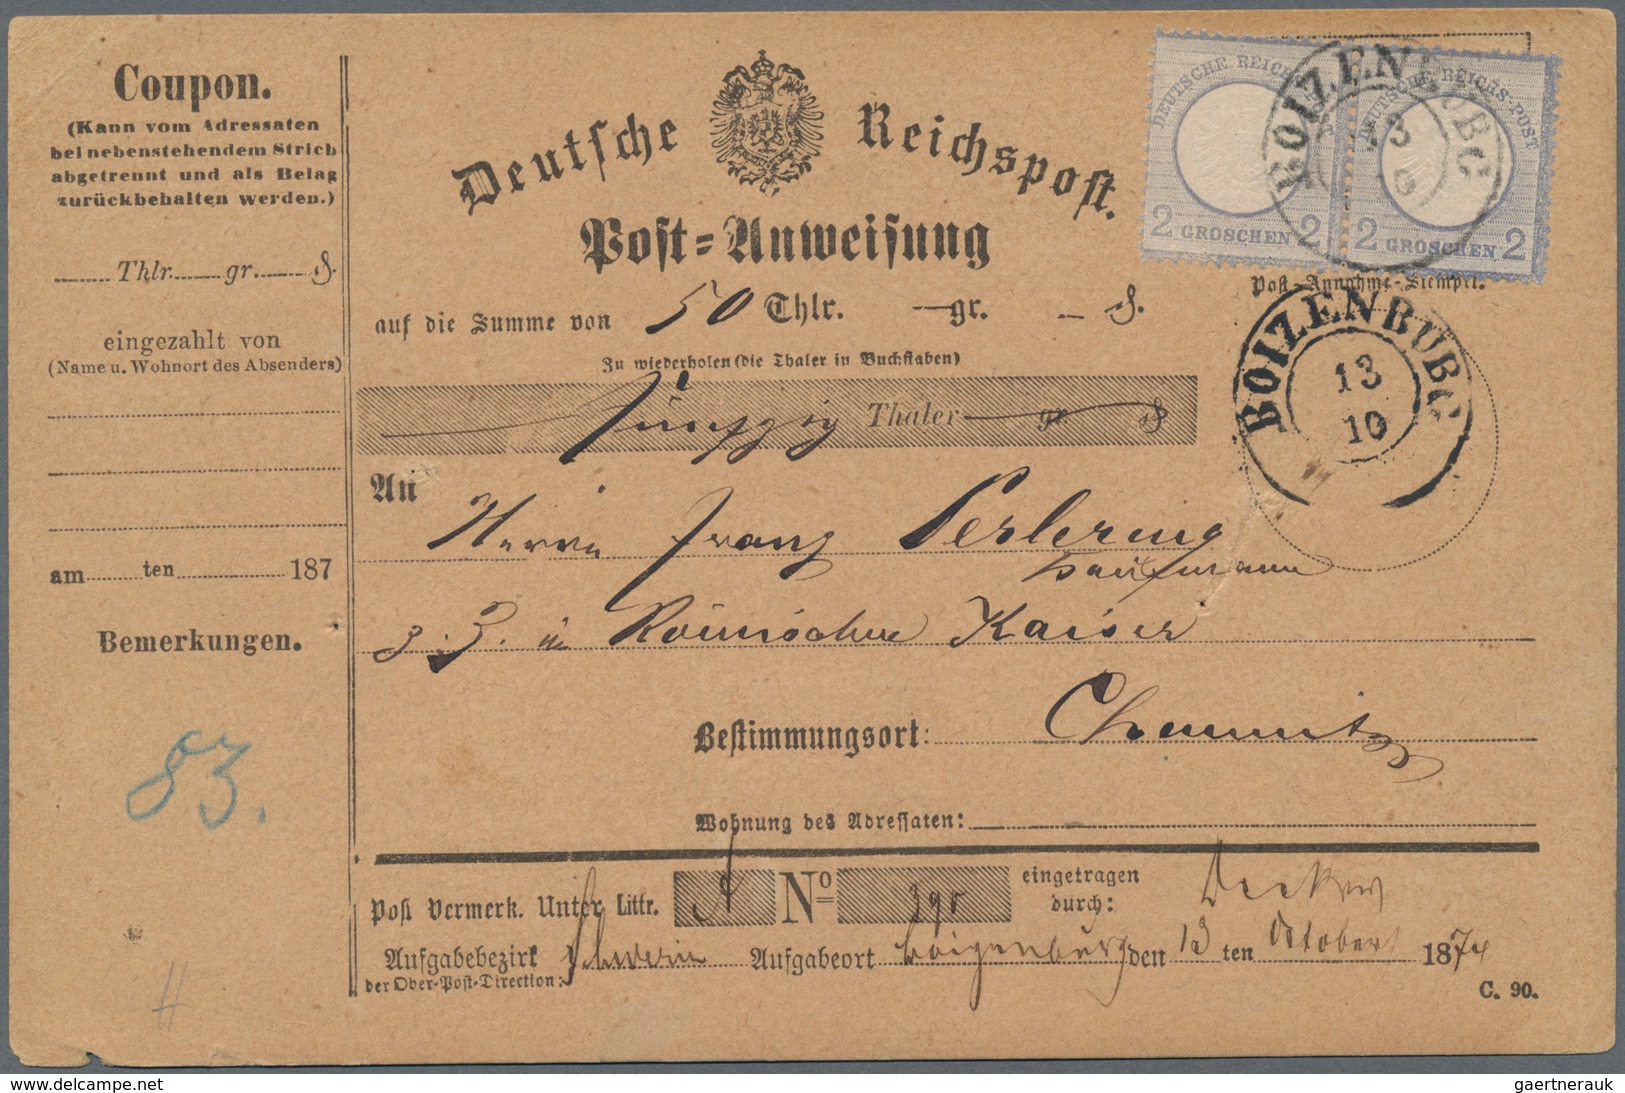 Coupon.
(Kann vom Adressaten
bei nebenstehendem Strich
abgetrennt und als Belag
zurückbehalten werden.)
Thlr. gr. ₰
eingezahlt von
(Name u. Wohnort des Absenders)
am ten 187
Bemerkungen.
83.
Deutsche Reichspost.
Post-Anweisung
auf die Summe von 50 Thlr. — gr. — ₰.
Zu wiederholen (die Thaler in Buchstaben)
fünfzig Thaler — gr. ₰
DEUTSCHE REICHS-POST
2 GROSCHEN 2
DEUTSCHE REICHS-POST
2 GROSCHEN 2
BOIZENBURG
13
10
Post-Annahme-Stempel.
BOIZENBURG
13
10
An Herrn Franz
Kaufmann
z. Z. in Römischer Kaiser
Bestimmungsort: Chemnitz
Wohnung des Adressaten:
Post Vermerk. Unter Littr. A No 390 eingetragen
durch:
Aufgabebezirk Schwerin Aufgabeort Boizenburg den 13 ten October 1874
der Ober-Post-Direction:
C. 90.
gaertnerauk @ delcampe.net